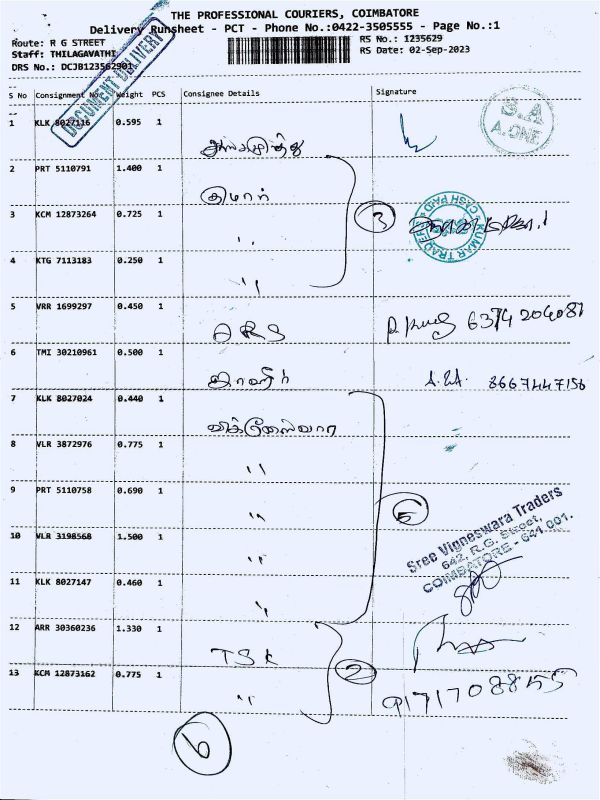 THE PROFESSIONAL COURIERS, COIMBATORE
Delivery Runsheet - PCT - Phone No.:0422-3505555 - Page No.:1
Route: R G STREET
RS No.: 1235629
Staff: THILAGAVATHI
RS Date: 02-Sep-2023
DRS No.: DCJB123562901
DOCUMENT DELIVERY
S No Consignment No. Weight PCS Consignee Details Signature
S.A
A.ONE
1 KLK 8027116 0.595 1
2 PRT 5110791 1.400 1 குமார்
3 KCM 12873264 0.725 1 "
3
KUMAR TRADERS
CASH PAID
4 KTG 7113183 0.250 1 "
5 VRR 1699297 0.450 1 ARS 6374204087
6 TMI 30210961 0.500 1 8667447156
7 KLK 8027024 0.440 1
8 VLR 3872976 0.775 1 "
9 PRT 5110758 0.690 1 "
5
Sree Vigneswara Traders
642, R.G. Street,
COIMBATORE - 641 001.
10 VLR 3198568 1.500 1 "
11 KLK 8027147 0.460 1 "
12 ARR 30360236 1.330 1 TSK
2
13 KCM 12873162 0.775 1 "
6